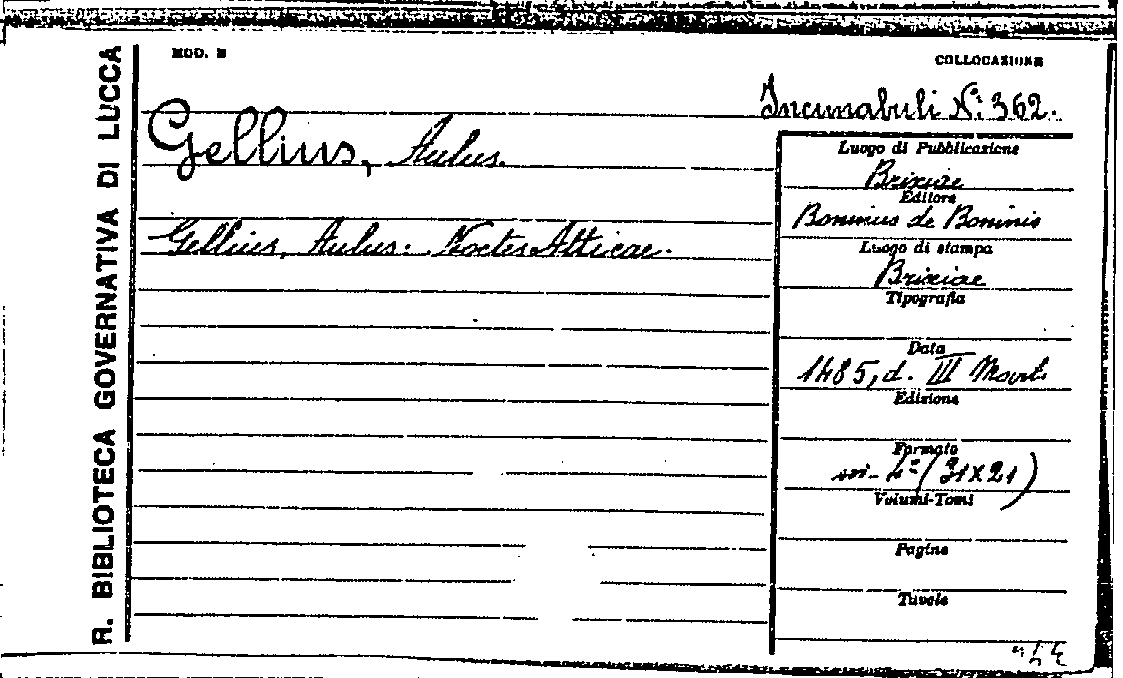 R. BIBLIOTECA GOVERNATIVA DI LUCCA
MOD. B
COLLOCAZIONE
Incunabuli N. 362.
Gellius, Aulus.
Gellius, Aulus. Noctes Atticae.
Luogo di Pubblicazione
Brixiae
Editore
Boninus de Boninis
Luogo di stampa
Brixiae
Tipografia
Data
1485, d. III Mart
Edizione
Formato
in-4° (31x21)
Volumi-Tomi
Pagine
Tavole